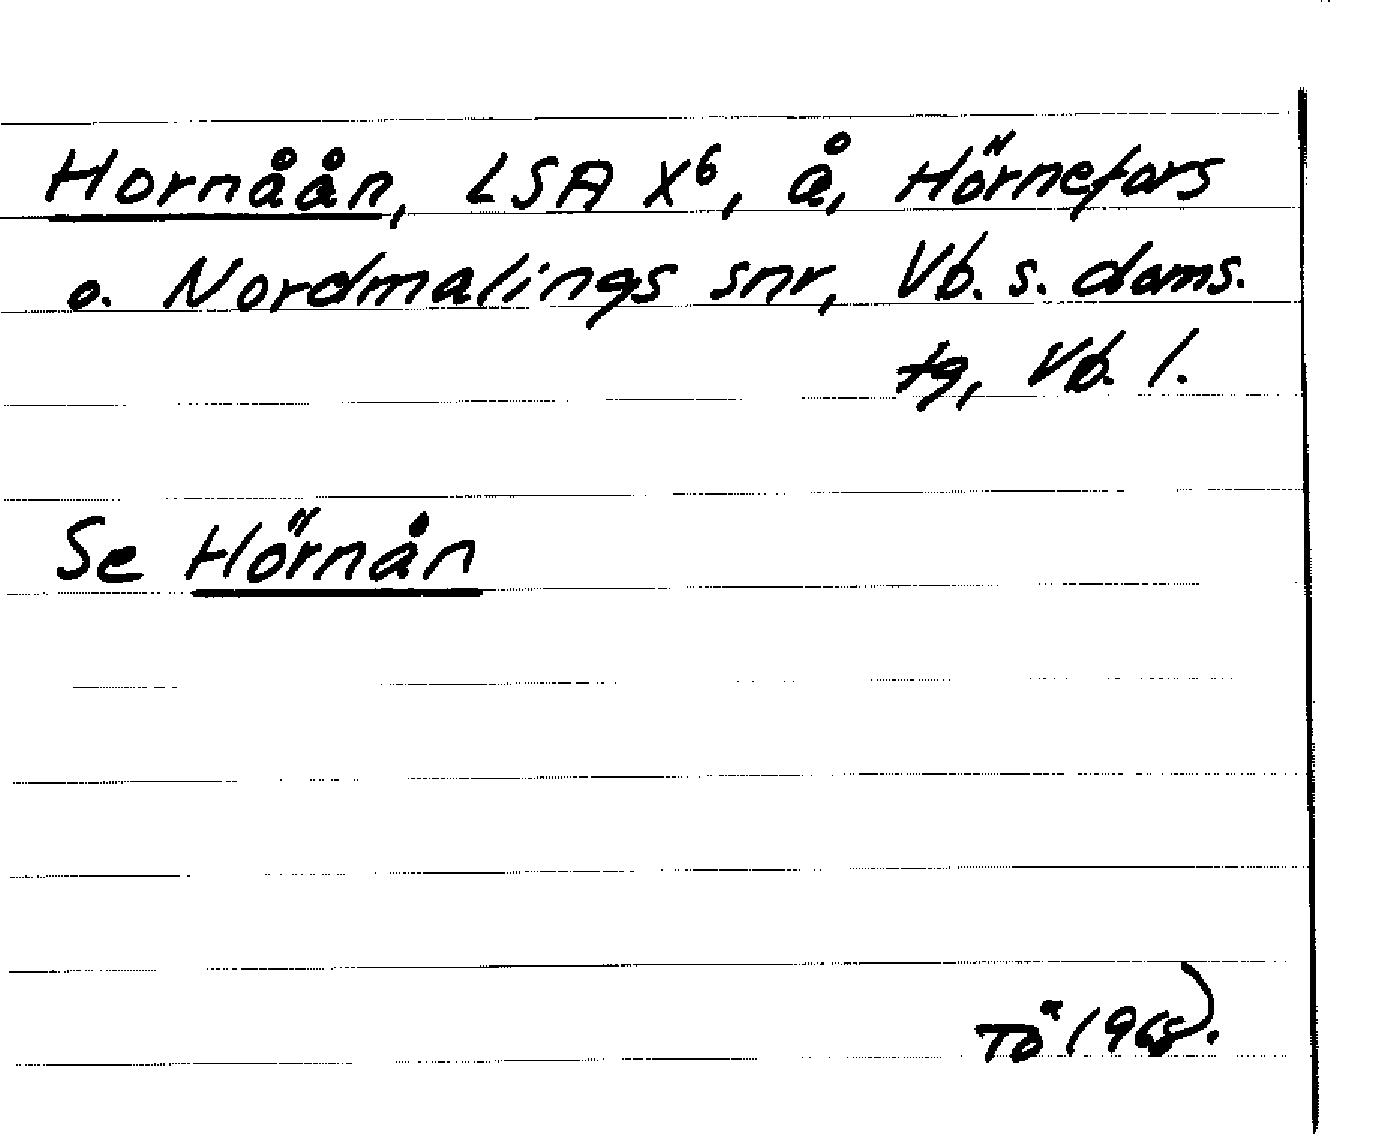 Hornåån, LSA X⁶, å, Hörnefors
o. Nordmalings snr, Vb. s. doms.
tg, Vb. l.
Se Hörnån
Tö